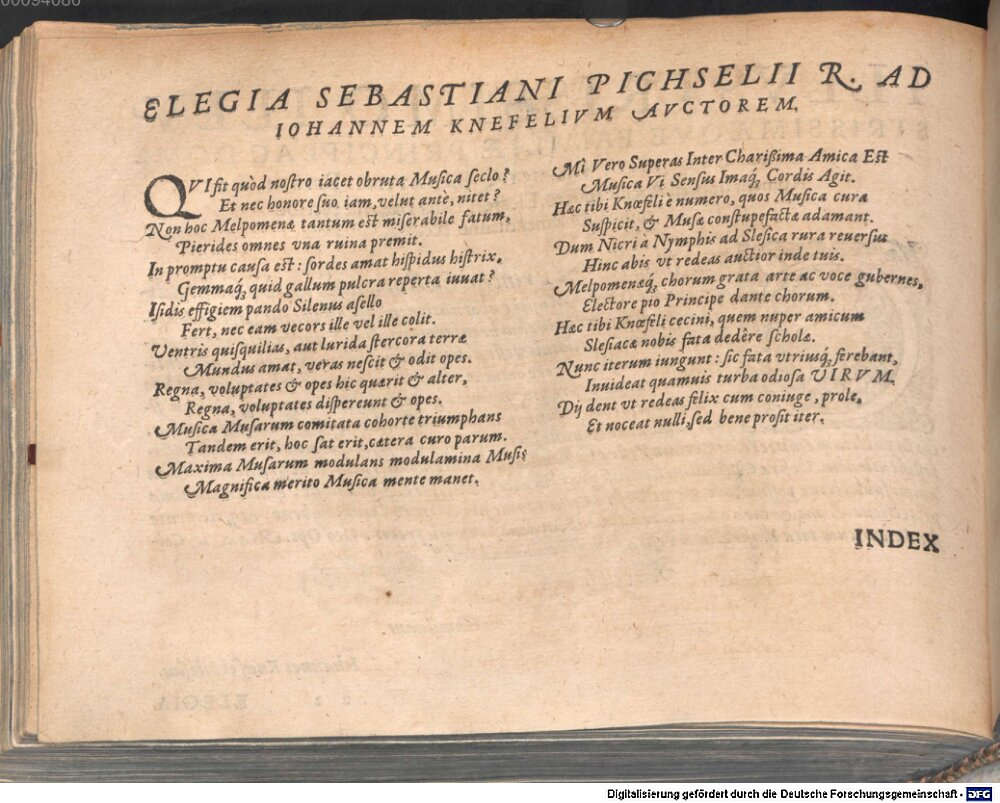 00094080
ELEGIA SEBASTIANI PICHSELII R. AD
IOHANNEM KNEFELIVM AVCTOREM.
QVI fit quòd nostro iacet obruta Musica seclo?
Et nec honore suo iam, velut ante, nitet?
Non hoc Melpomenæ tantum est miserabile fatum,
Pierides omnes vna ruina premit.
In promptu causa est: sordes amat hispidus histrix,
Gemmaq́; quid gallum pulcra reperta iuuat?
Isidis effigiem pando Silenus asello
Fert, nec eam vecors ille vel ille colit.
Ventris quisquilias, aut lurida stercora terræ
Mundus amat, veras nescit & odit opes.
Regna, voluptates & opes hic quærit & alter,
Regna, voluptates dispereunt & opes.
Musica Musarum comitata cohorte triumphans
Tandem erit, hoc sat erit, cætera curo parum.
Maxima Musarum modulans modulamina Musis
Magnifica merito Musica mente manet.
Mì Vero Superas Inter Charißima Amica Est
Musica Vi Sensus Imaq́; Cordis Agit.
Hæc tibi Knœfeli è numero, quos Musica cura
Suspicit, & Musæ constupefactæ adamant.
Dum Nicri à Nymphis ad Slesica rura reuersus
Hinc abis vt redeas auctior inde tuis.
Melpomenæq́; chorum grata arte ac voce gubernes,
Electore pio Principe dante chorum.
Hæc tibi Knœfeli cecini, quem nuper amicum
Slesiacæ nobis fata dedêre scholæ.
Nunc iterum iungunt: sic fata vtriusq́; ferebant,
Inuideat quamuis turba odiosa VIRVM.
Dij dent vt redeas felix cum coniuge, prole,
Et noceat nulli, sed bene prosit iter.
INDEX
Digitalisierung gefördert durch die Deutsche Forschungsgemeinschaft - DFG